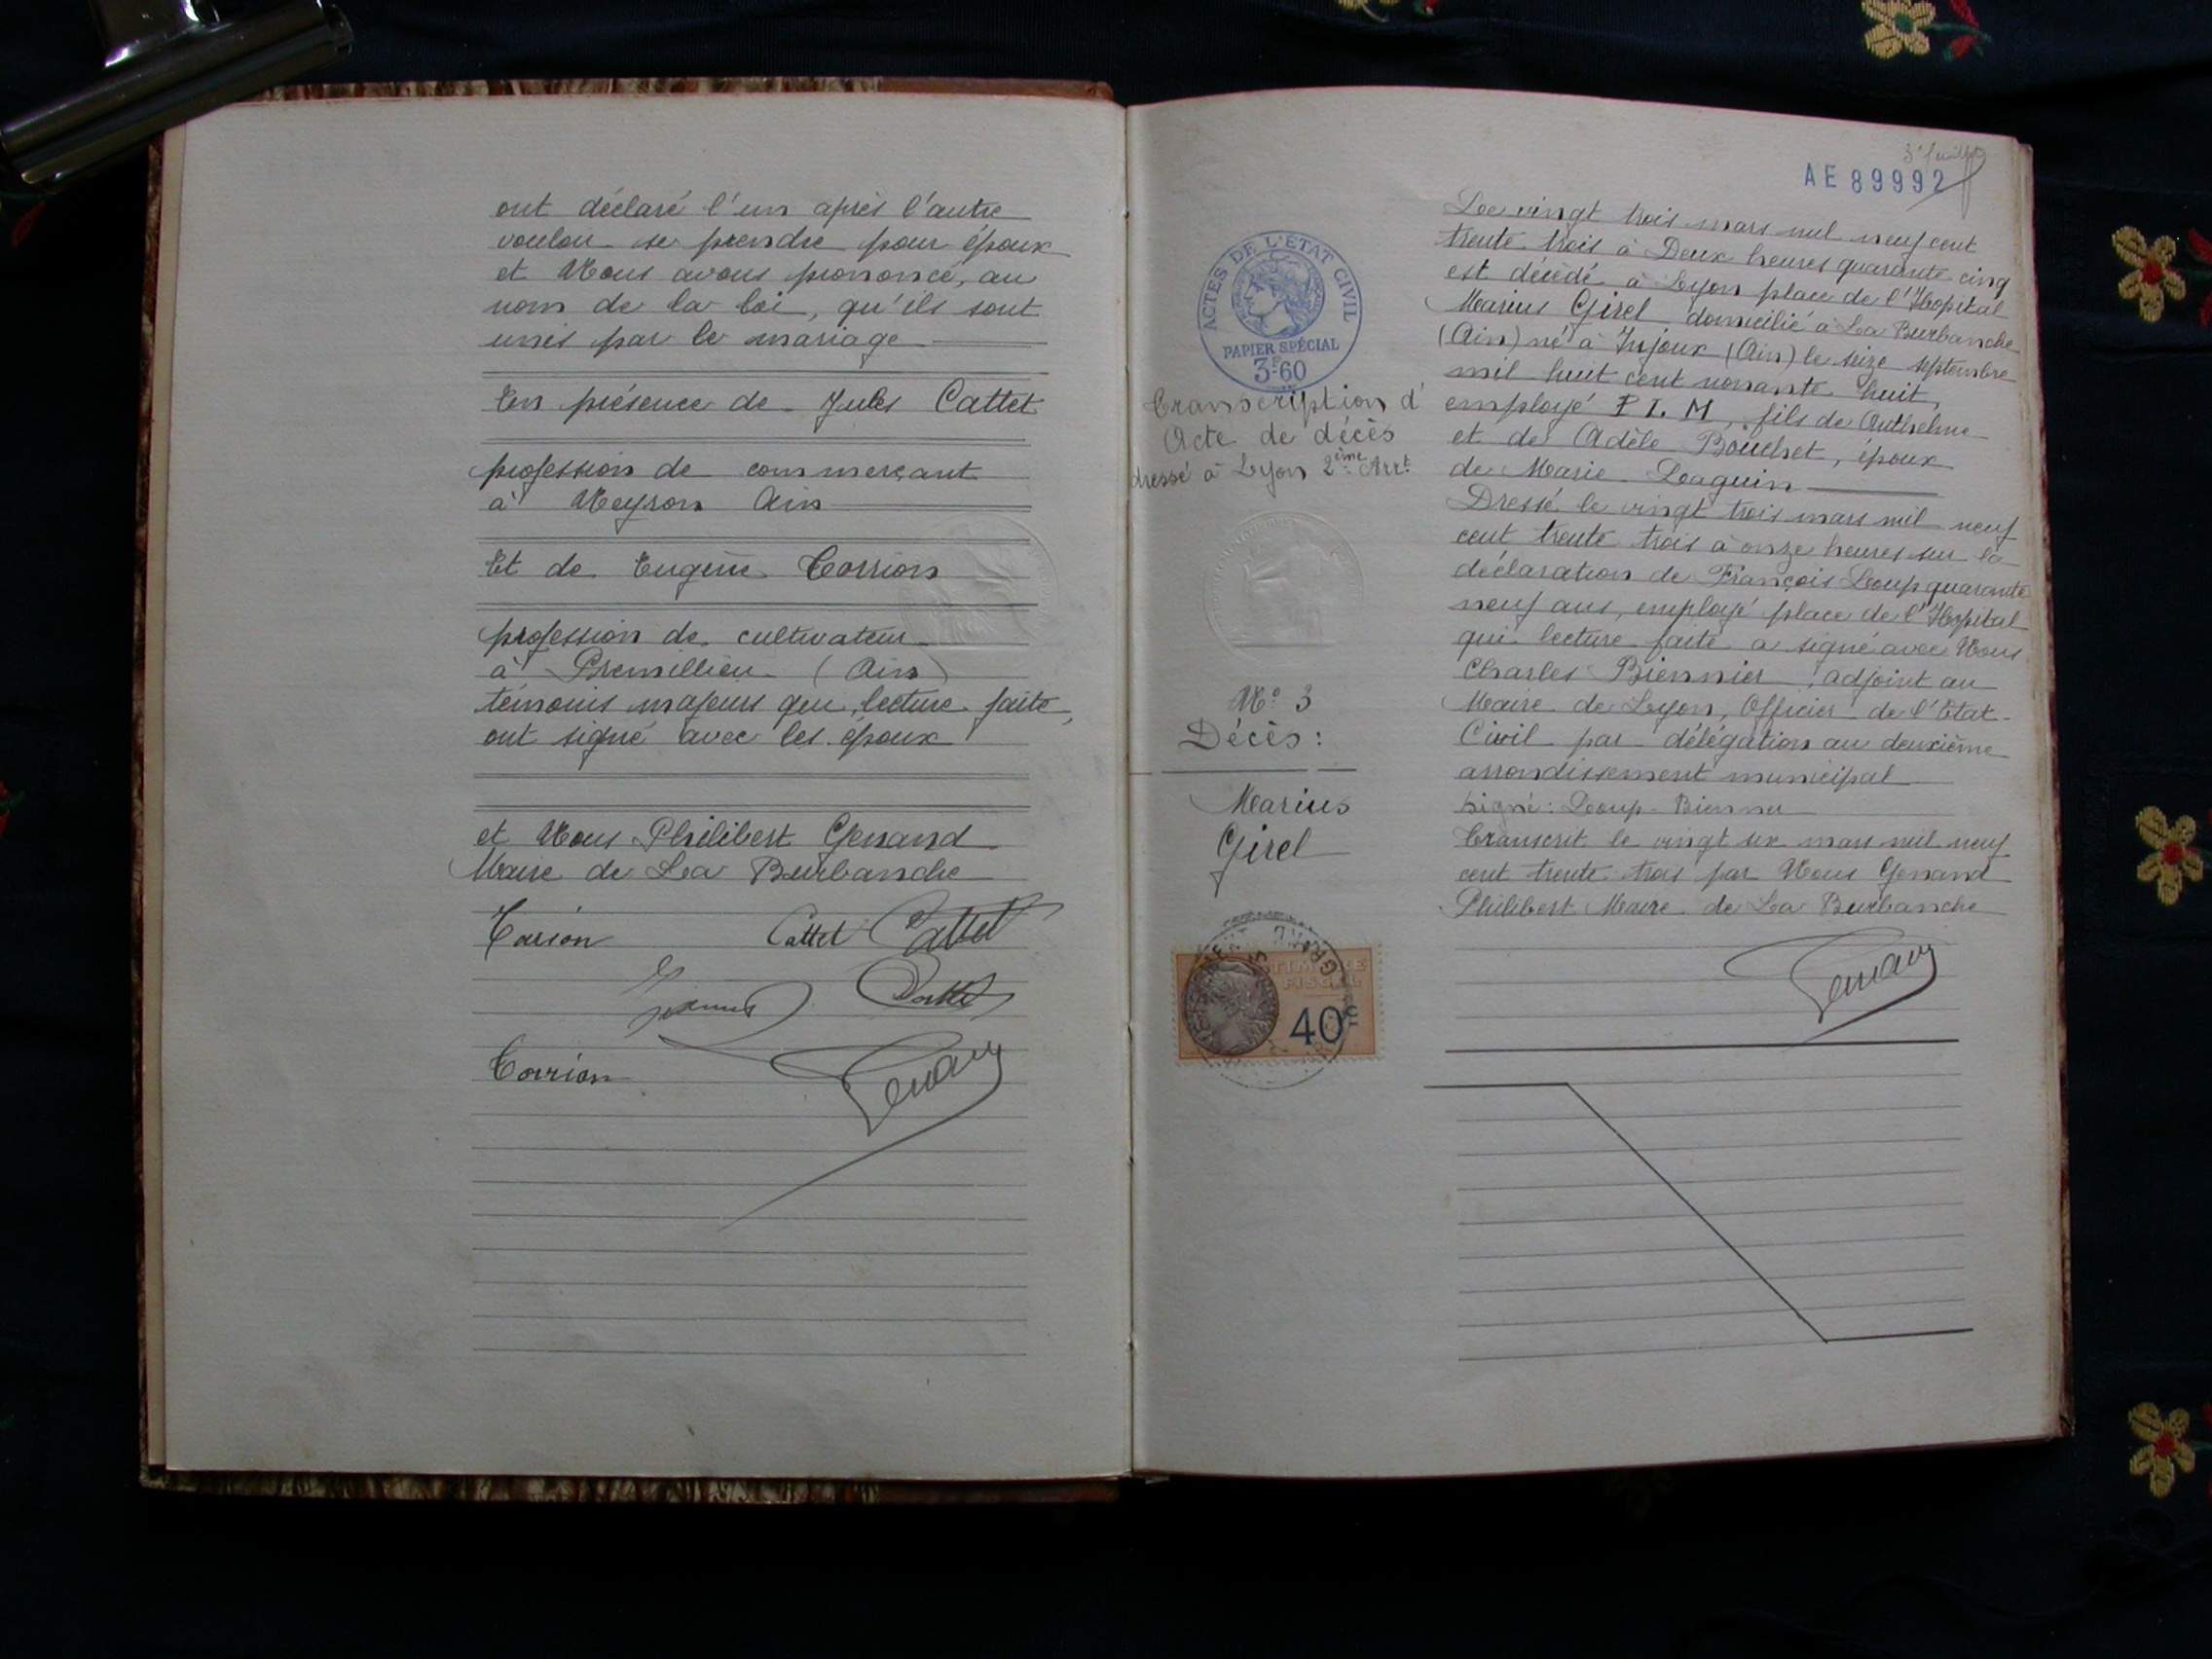 ont déclaré l'un après l'autre
vouloir se prendre pour époux
et Nous avons prononcé, au
nom de la loi, qu'ils sont
unis par le mariage
En présence de Jules Cattet
profession de commerçant
à Neyron Ain
Et de Eugène Corrion
profession de cultivateur
à Prémillieu (Ain)
témoins majeurs qui, lecture faite,
ont signé avec les époux
et Nous Philibert Genand
Maire de La Burbanche
Cattet Cattet
Corrion
Genand
3e feuillet
AE 89992
ACTES DE L'ÉTAT CIVIL
PAPIER SPÉCIAL
3F60
Transcription d'
Acte de décès
dressé à Lyon 2ème Arrt
N° 3
Décès:
Marius
Girel
TIMBRE
FISCAL
40
Le vingt trois mars mil neuf cent
trente trois à Deux heures quarante cinq
est décédé à Lyon place de l'Hopital
Marius Girel domicilié à La Burbanche
(Ain) né à Injoux (Ain) le seize septembre
mil huit cent nonante huit,
employé P L M, fils de Anthelme
et de Adèle Bouchet, époux
de Marie Laguin
Dressé le vingt trois mars mil neuf
cent trente trois à onze heures sur la
déclaration de François Loup quarante
neuf ans, employé place de l'Hopital
qui lecture faite a signé avec Nous
Charles Biennier, adjoint au
Maire de Lyon, Officier de l'Etat-
Civil par délégation au deuxième
arrondissement municipal
Signé: Loup - Biennier
Transcrit le vingt six mars mil neuf
cent trente trois par Nous Genand
Philibert Maire de La Burbanche
Genand